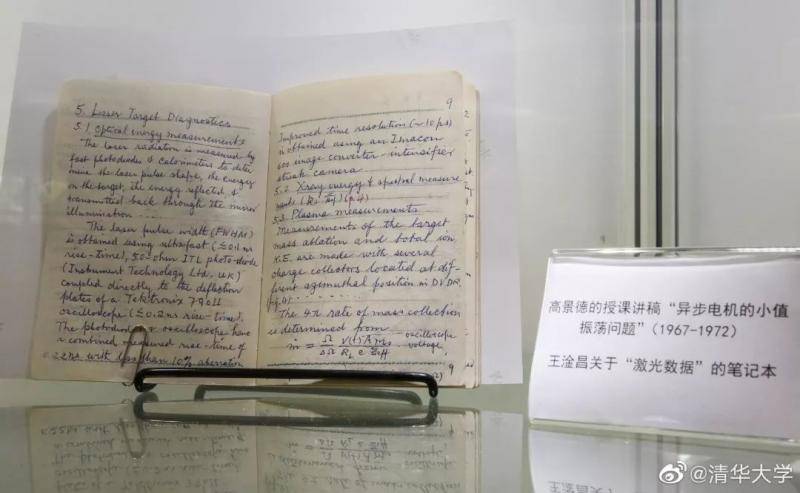 5. Laser Target Diagnostics
5.1 Optical energy measurements
The laser radiation is measured by
fast photodiodes & calorimeters to deter
mine the laser pulse shape, the energy
on the target, the energy reflected &
transmitted back through the mirror
illumination ....
The laser pulse width (FWHM)
is obtained using ultrafast (≤0.1 ns
rise-time), 50-ohm ITL photo-diode
(Instrument Technology Ltd., UK)
coupled directly to the deflection
plates of a Tektronix 7904
oscilloscope (≤0.2 ns rise-time).
The photodiode & oscilloscope have
a combined measured rise-time of
0.22 ns with less than 10% aberration
9
Improved time resolution (~10 ps)
is obtained using an Imacon
image converter-intensifier
streak camera
5.2 X-ray energy & spectral measure
ments
5.3 Plasma measurements
Measurements of the target
mass ablation and total ion
K.E. are made with several
charge collectors located at dif-
ferent azimuthal position in
The 4π rate of mass collection
is determined from
oscilloscope
voltage
9
高景德的授课讲稿“异步电机的小值
振荡问题”(1967-1972)
王淦昌关于“激光数据”的笔记本
@清华大学